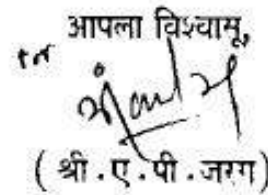 आपला विश्वासू,
( श्री . ए . पी . जरग )